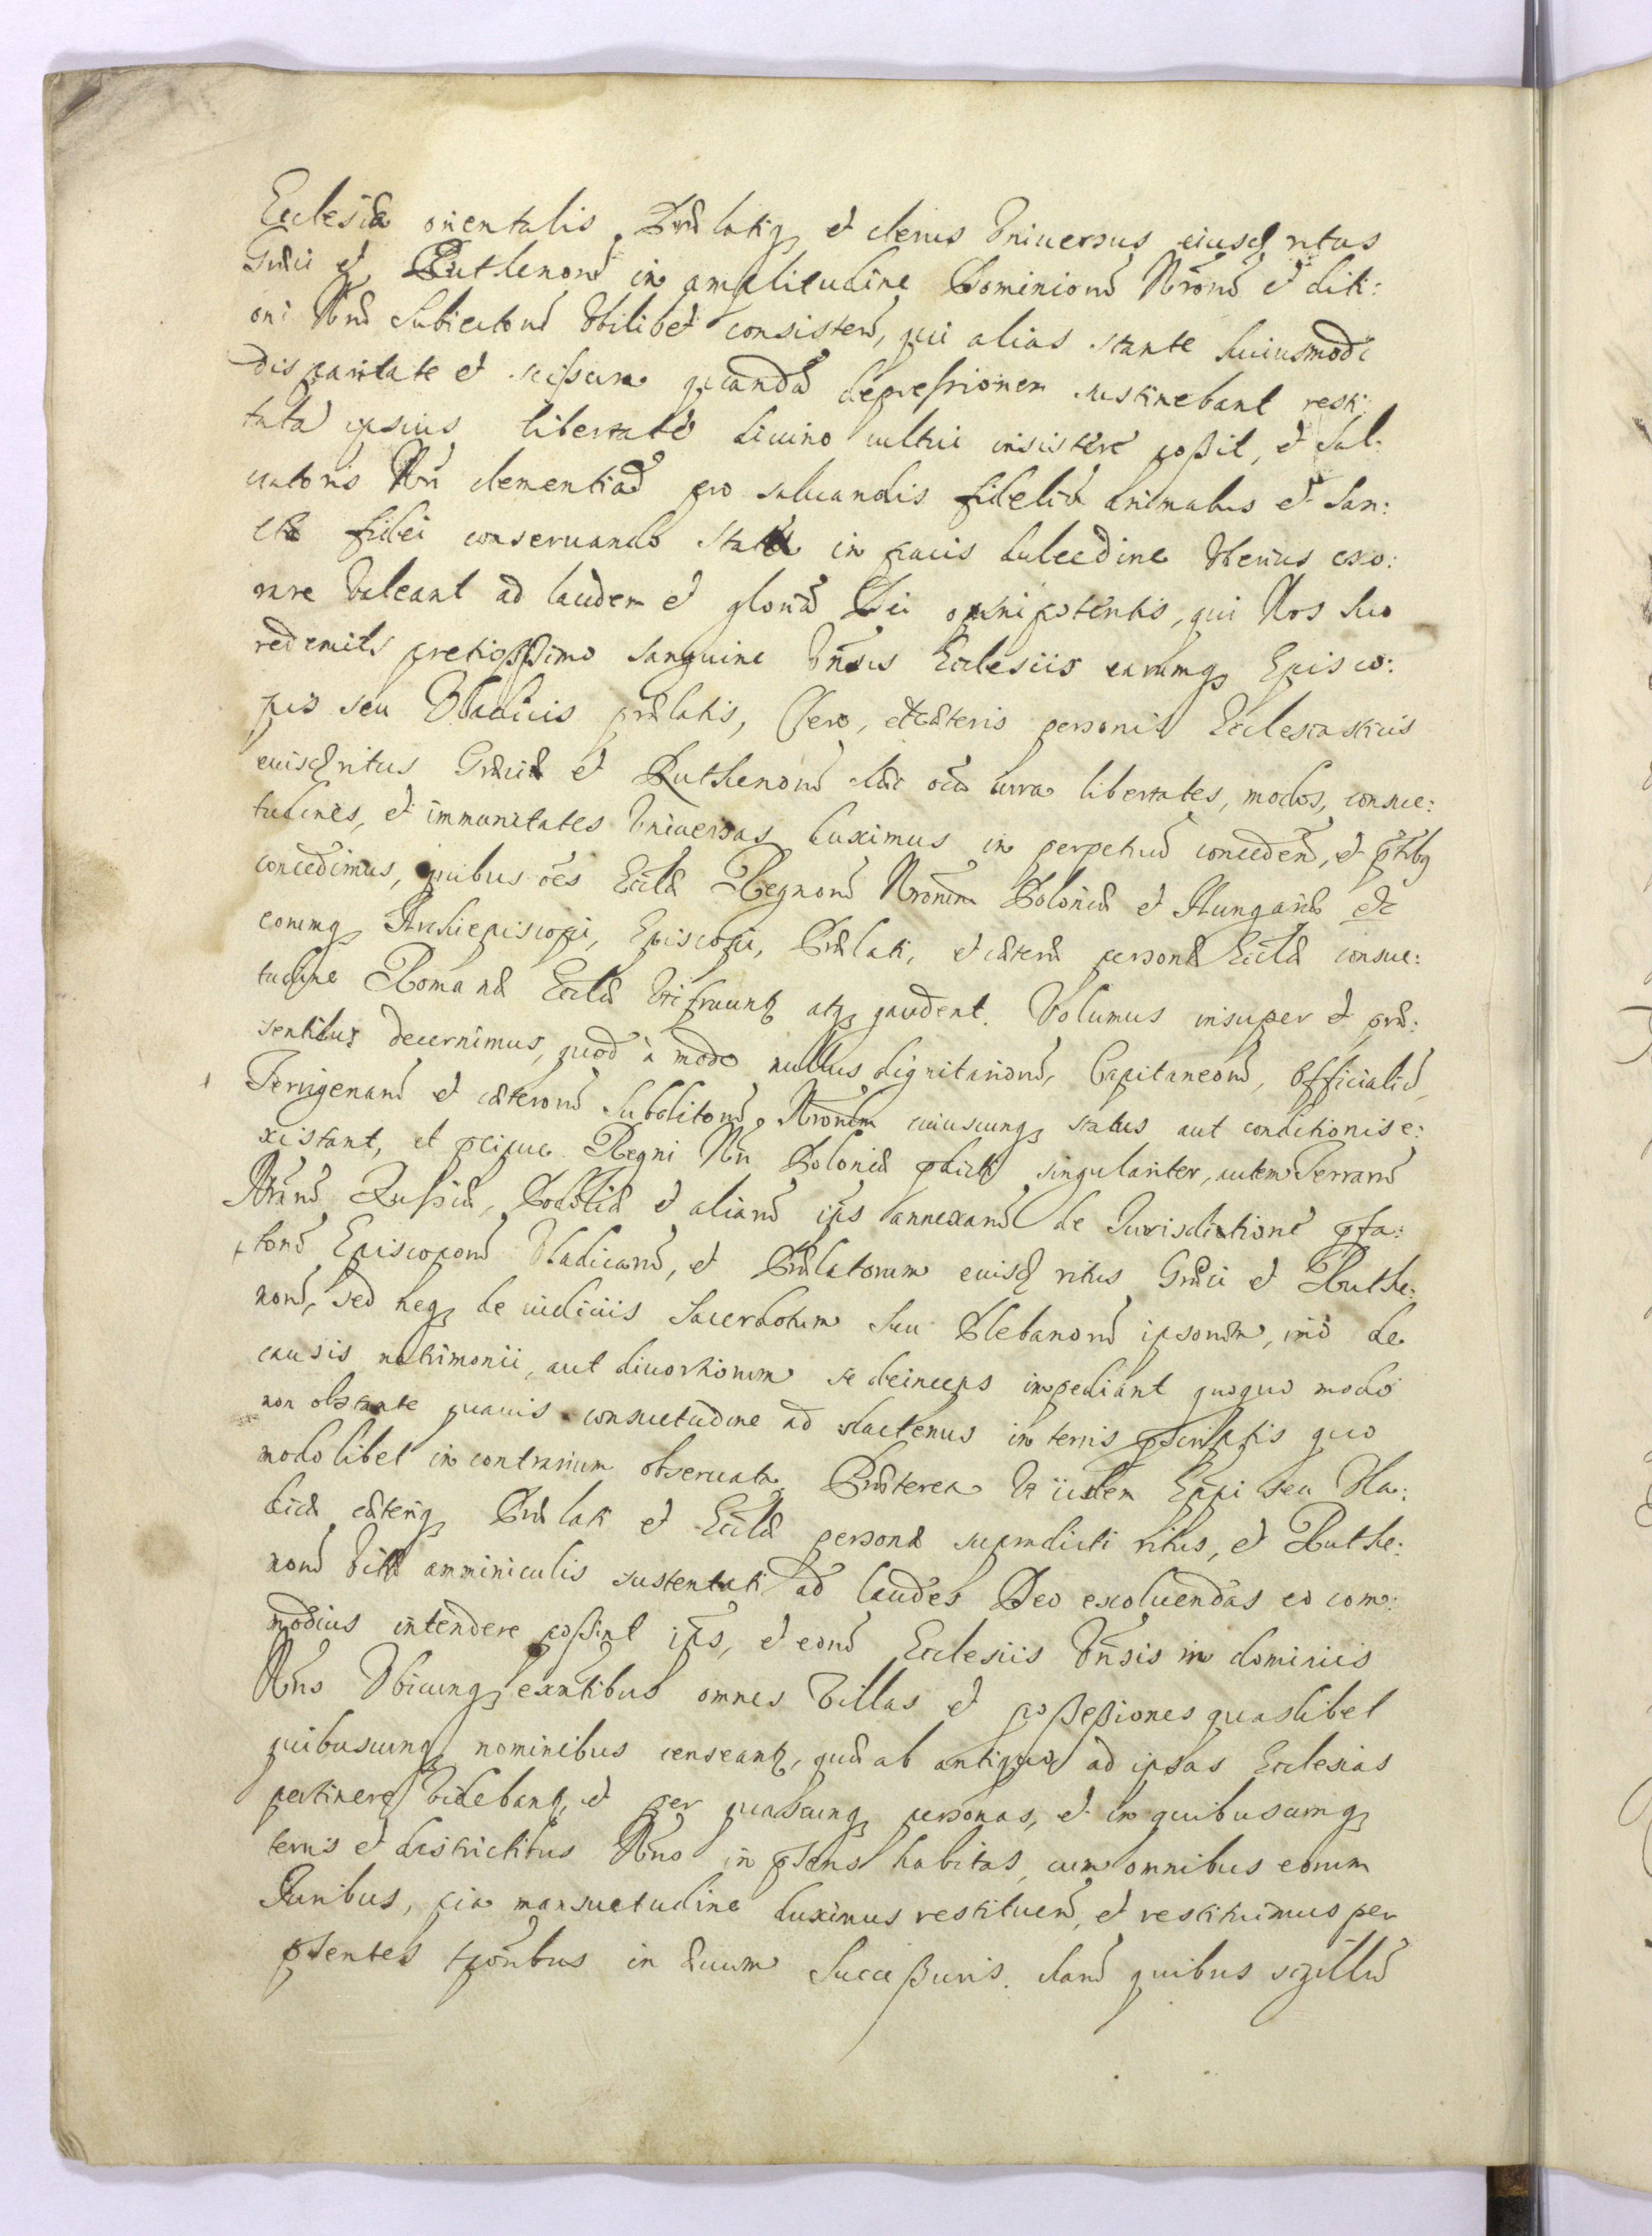 Ecclesiæ orientalis, Prælatiq; et clerus Universus eiusd ritus
Græci et Ruthenorũ in amplitudine Dominiorũ Nrorũ et diti:
oni Nræ Subiectorũ Ubilibet consisteñ, qui alias stante huiusmodi
disparitate et scissura quandã depressionem sustinebant resti:
tuta ipsius libertate divino cultui insistere possit, et Sal:
uatoris Nri clementiã pro saluandis fideliũ animabus et San:
ctæ fidei conseruando statu in pacis dulcedine Uberius exo:
rare Valeant ad laudem et gloriã Dei omnipotentis, qui Nos suo
redemit pretiosissimo Sanguine Uñsis Ecclesiis earumq; Episco:
pis seu Vladicis prælatis, Clero, et cæteris personis Ecclesiasticis
eiusd ritus Græci et Ruthenorũ hæc oĩa iura libertates, modos, consue:
tudines, et immunitates Universas duximus in perpetuũ concedeñ, et pñtibq
concedimus, quibus oẽs Eccłæ Regnorũ Nrorum Poloniæ et Hungariæ etc
eorumq; Archiepiscopi, Episcopi, Prælati, et cæteræ personæ Eccłæ consue:
tudine Romanæ Eccłæ Utifruuntʒ atq; gaudent. Volumus insuper et præ:
sentibus decernimus, quod à modo nullus dignitariorũ, Capitaneorũ, Officialiũ,
Terrigenarũ et cæterorũ Subditorũ Nrorum cuiuscunq; status aut conditionis e:
xistant, et pcipue Regni Nri Poloniæ pdicti singulariter, autem Terrarũ
Nrarũ Russiæ, Podoliæ et aliarũ ip̃s annexarũ de Jurisdictione pfa:
torũ Episcoporũ Vladicarũ, et Prælatorum eiusd ritus Græci et Ruthe:
norũ, sed neq; de iudiciis Sacerdotum seu Plebanorũ ipsorum, imò de
causis matrimonii, aut divortiorum se deinceps impediant quoquo modo
non obstante quavis consuetudine ad hactenus in terris pscriptis quo
modolibet in contrarium obseruata. Præterea Ut iidem Ep̃pi seu Vla:
dicæ cæteriq; Prælati et Eccłæ personæ supradicti ritus, et Ruthe:
norũ Vitæ amminiculis sustentati ad laudes Deo exoluendas eo com:
modius intendere possint ip̃s, et eorũ Ecclesiis Uñsis in dominiis
Nris Ubicunq; exñtibus omnes Villas et possessiones quaslibet
quibuscunq; nominibus censeantʒ, quæ ab antiquo ad ipsas Ecclesias
pertinere Videbantʒ, et per quascunq; personas, et in quibuscumq;
terris et districtibus Nris in psens habitas, cum omnibus eorum
Juribus, pia mansuetudine duximus restitueñ, et restituimus per
psentes tporibus in æuum Successuris. harũ quibus sigillũ